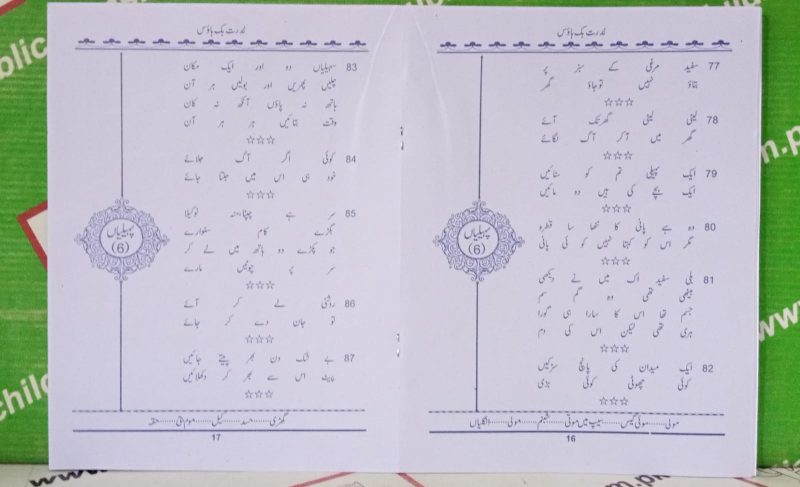 ندرت بک ہاؤس
77 سفید مرغی کے سبز پر
بتاؤ نہیں تو جاؤ گھر
☆☆☆
78 لیٹی لیٹی گھر تک آئے
گھر میں آ کر آگ لگائے
☆☆☆
79 ایک پہیلی تم کو سنائیں
ایک بچے کی ہیں دو مائیں
☆☆☆
80 وہ ہے پانی کا ننھا سا قطرہ
مگر اس کو کہتا نہیں کوئی پانی
☆☆☆
81 بلی سفید اک میں نے دیکھی
بیٹھی تھی وہ گم سم
جسم تھا اس کا سارا ہی گورا
ہری تھی لیکن اس کی دم
☆☆☆
82 ایک میدان کی پانچ سڑکیں
کوئی چھوٹی کوئی بڑی
☆☆☆
پہیلیاں
(6)
مولی……سوئی گیس……سیپ میں موتی……شبنم……مولی……انگلیاں
16
ندرت بک ہاؤس
83 سہیلیاں دو اور ایک مکان
چلیں پھریں اور بولیں ہر آن
ہاتھ نہ پاؤں آنکھ نہ کان
وقت بتائیں ہر ہر آن
☆☆☆
84 کوئی اگر آگ جلائے
خود ہی اس میں جلتا جائے
☆☆☆
85 سر ہے چپٹا، منہ نوکیلا
بگڑے کام سنوارے
جو پکڑے وہ ہاتھ میں لے کر
سر پر چوٹیں مارے
☆☆☆
86 روشنی لے کر آئے
تو جان دے کر جائے
☆☆☆
87 بے شک دن بھر پیتے جائیں
پیٹ اس سے بھر کر دکھلائیں
☆☆☆
پہیلیاں
(6)
گھڑی……حسد……کیل……موم بتی……حقہ
17